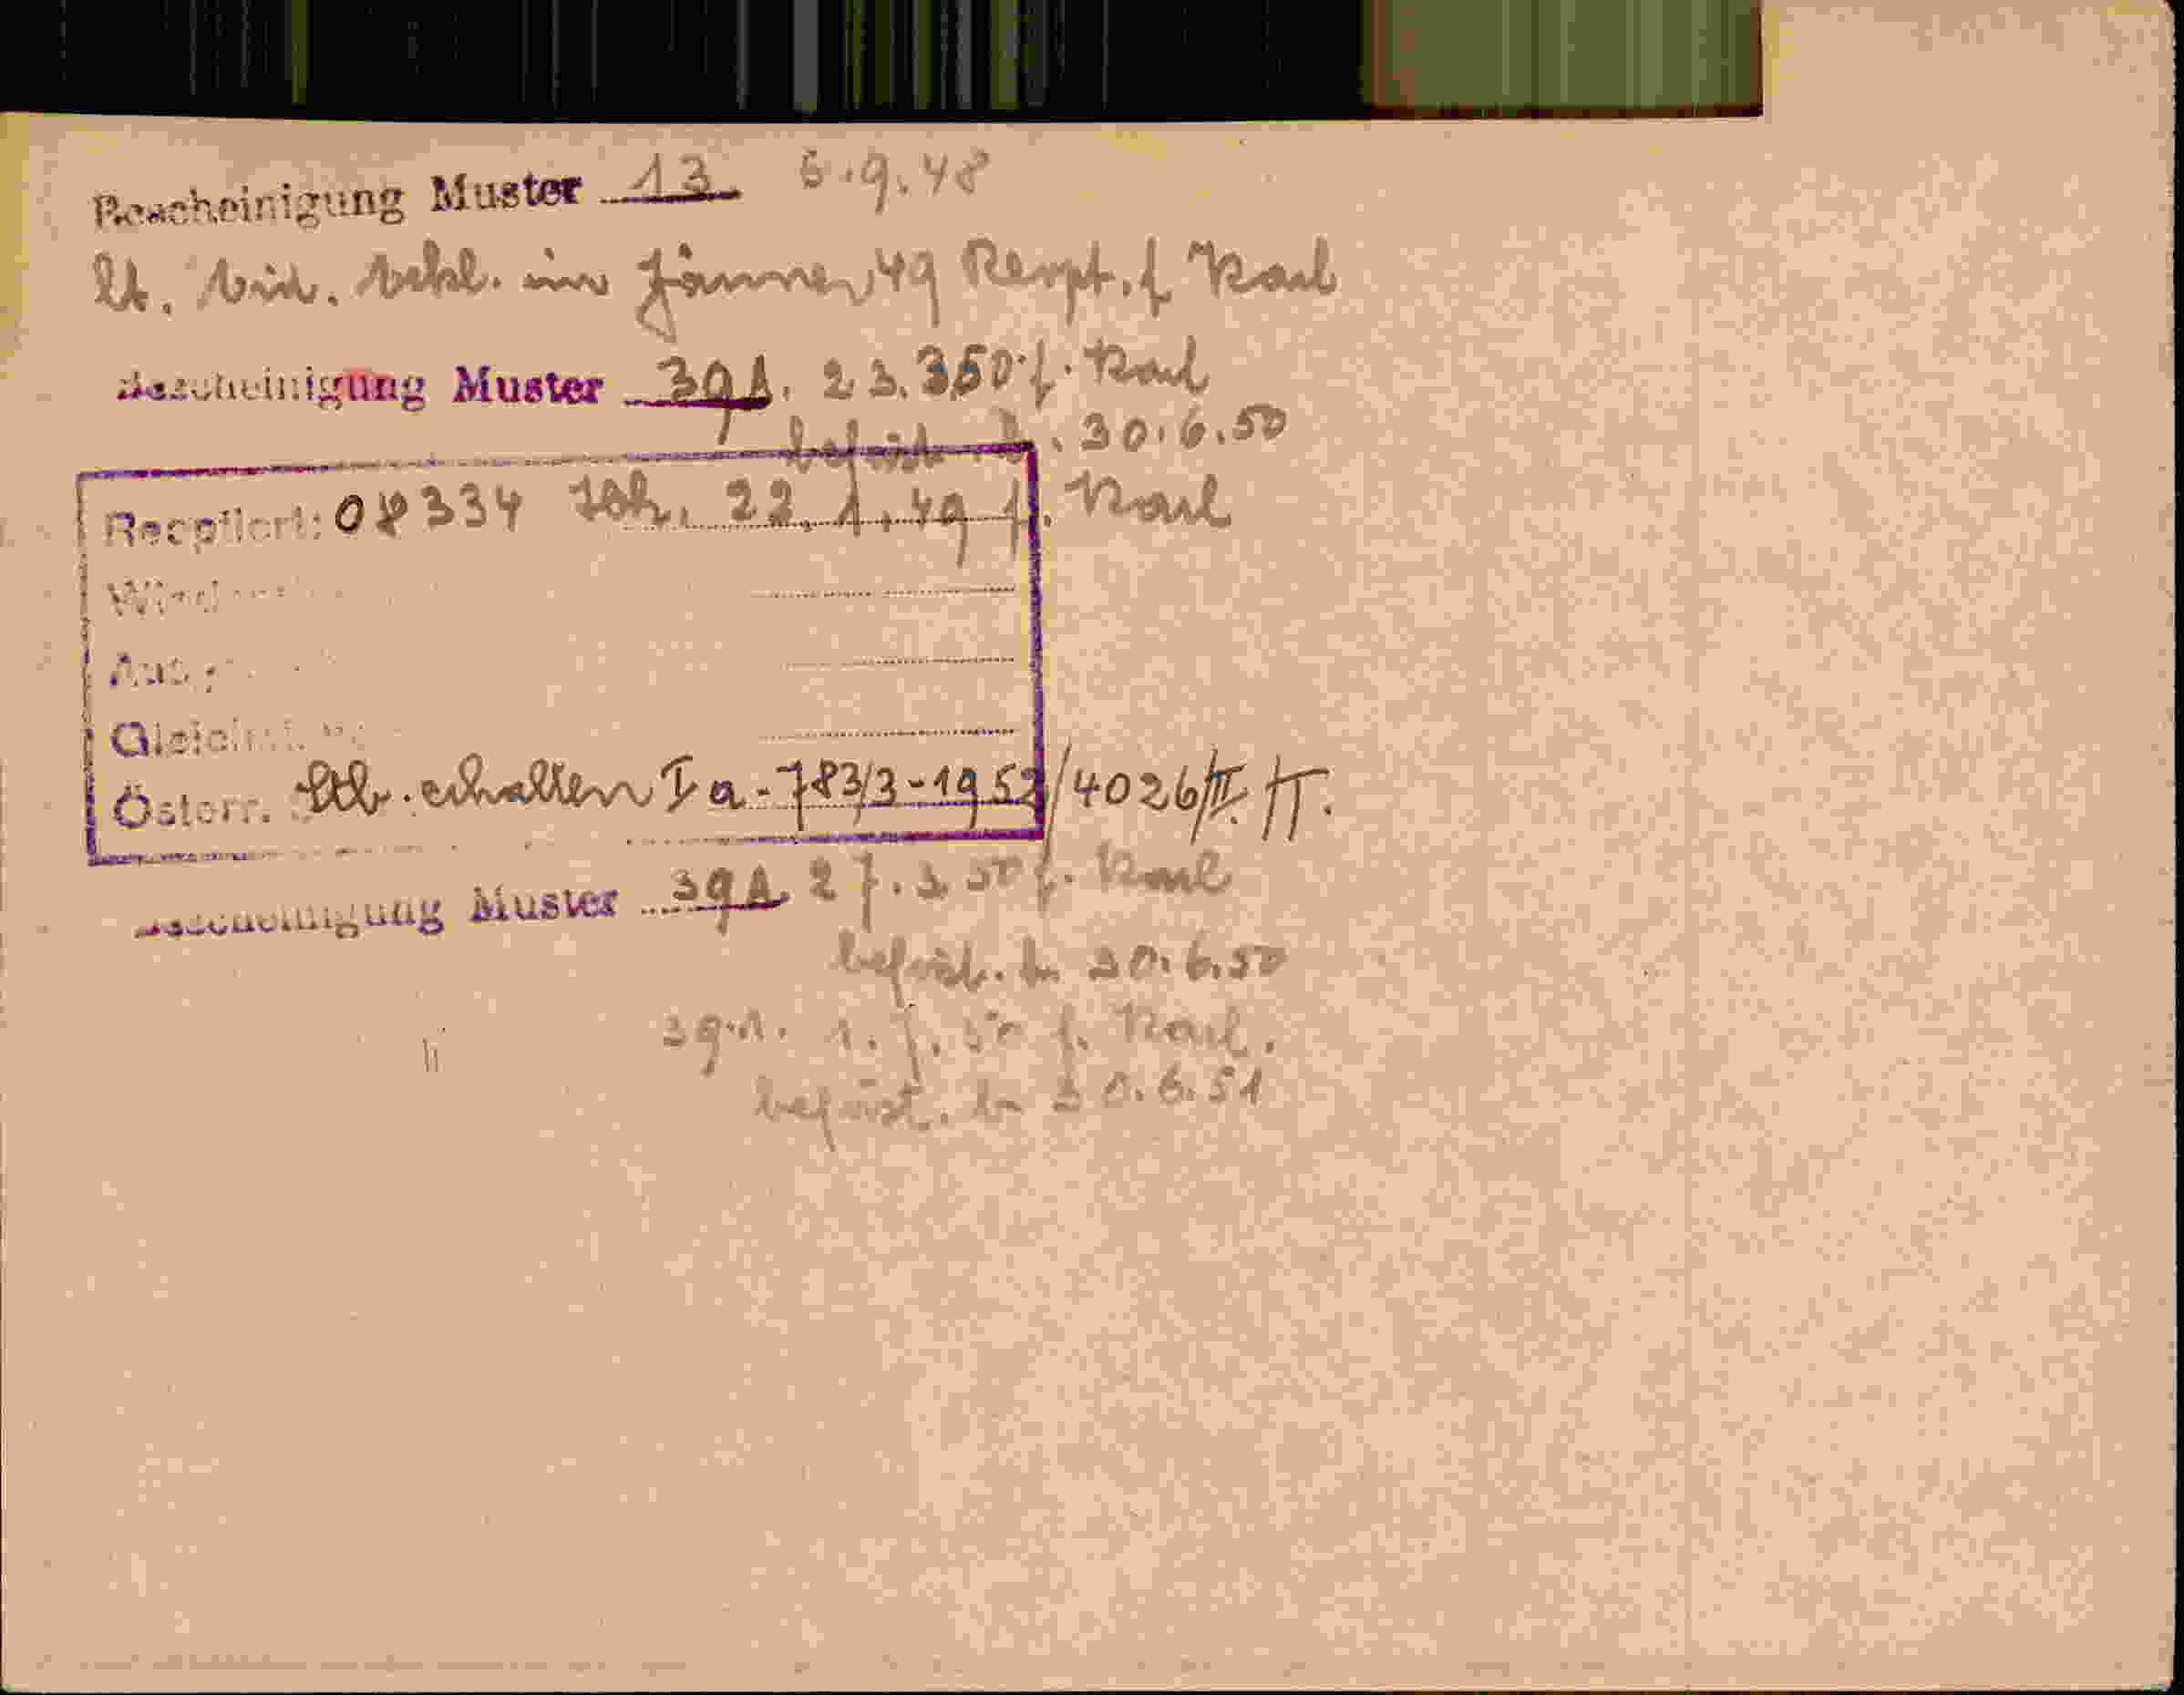 Bescheinigung Muster 13. 6.9.48
lt. eid. Erkl. im Jänner 49 Rept. f. Karl
Bescheinigung Muster 39A. 23.3.50 f. Karl
befrist. b. 30.6.50
Reeptiert: 08334 22.1.49 f. Karl
Österr. Stb. erhalten Ia-783/3-1952/4026/III. 
Bescheinigung Muster 39A 27.3.50 f. Karl
befrist. b. 30.6.50
39A. 1.7.50 f. Karl.
befrist. b. 30.6.51